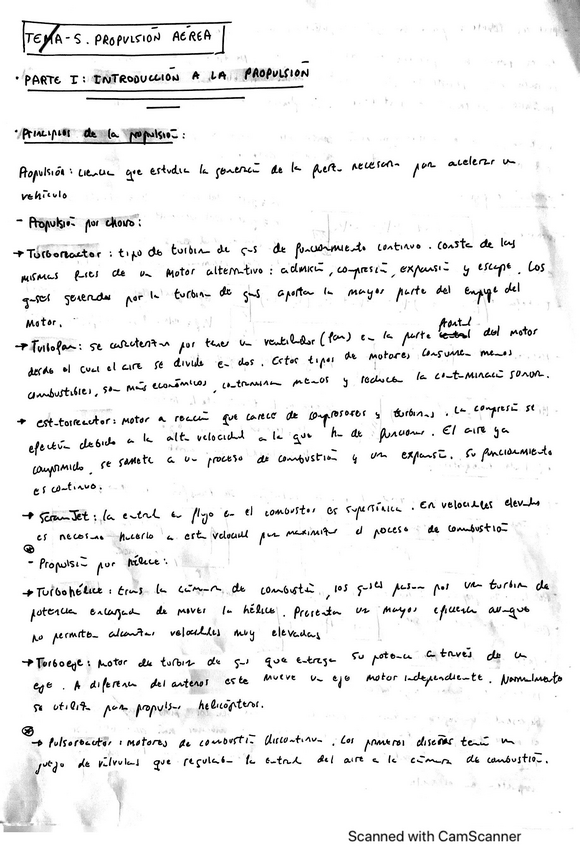 TEMA-5. PROPULSIÓN AÉREA
· PARTE I: INTRODUCCIÓN A LA PROPULSIÓN
· Principios de la propulsión:
Propulsión: ciencia que estudia la generación de la fuerza necesaria para acelerar un
vehículo
- Propulsión por chorro:
→ Turborreactor: tipo de turbina de gas de funcionamiento continuo. Consta de las
mismas fases de un motor alternativo: admisión, compresión, expansión y escape. Los
gases generados por la turbina de gas aportan la mayor parte del empuje del
motor.
→ Turbofan: se caracterizan por tener un ventilador (fan) en la parte frontal del motor
desde el cual el aire se divide en dos. Estos tipos de motores consumen menos
combustibles, son más económicos, contaminan menos y reducen la contaminación sonora.
→ Estatorreactor: motor a reacción que carece de compresores y turbinas. La compresión se
efectúa debido a la alta velocidad a la que ha de funcionar. El aire ya
comprimido, se somete a un proceso de combustión y una expansión. Su funcionamiento
es continuo.
→ ScramJet: la entrada en flujo en el combustor es supersónica. En velocidades elevadas
es necesario hacerlo a esta velocidad para maximizar el proceso de combustión
- Propulsión por hélice:
→ Turbohélice: tras la cámara de combustión, los gases pasan por una turbina de
potencia encargada de mover la hélice. Presentan una mayor eficiencia aunque
no permiten alcanzar velocidades muy elevadas
→ Turboeje: motor de turbina de gas que entrega su potencia a través de un
eje. A diferencia del anterior este mueve un eje motor independiente. Normalmente
se utiliza para propulsar helicópteros.
→ Pulsorreactor: motores de combustión discontinua. Los primeros diseños tenían un
juego de válvulas que regulaban la entrada del aire a la cámara de combustión.
Scanned with CamScanner